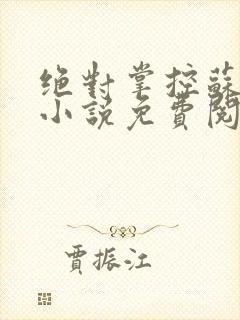 绝對掌控蘇
小說免費閱
賈振江